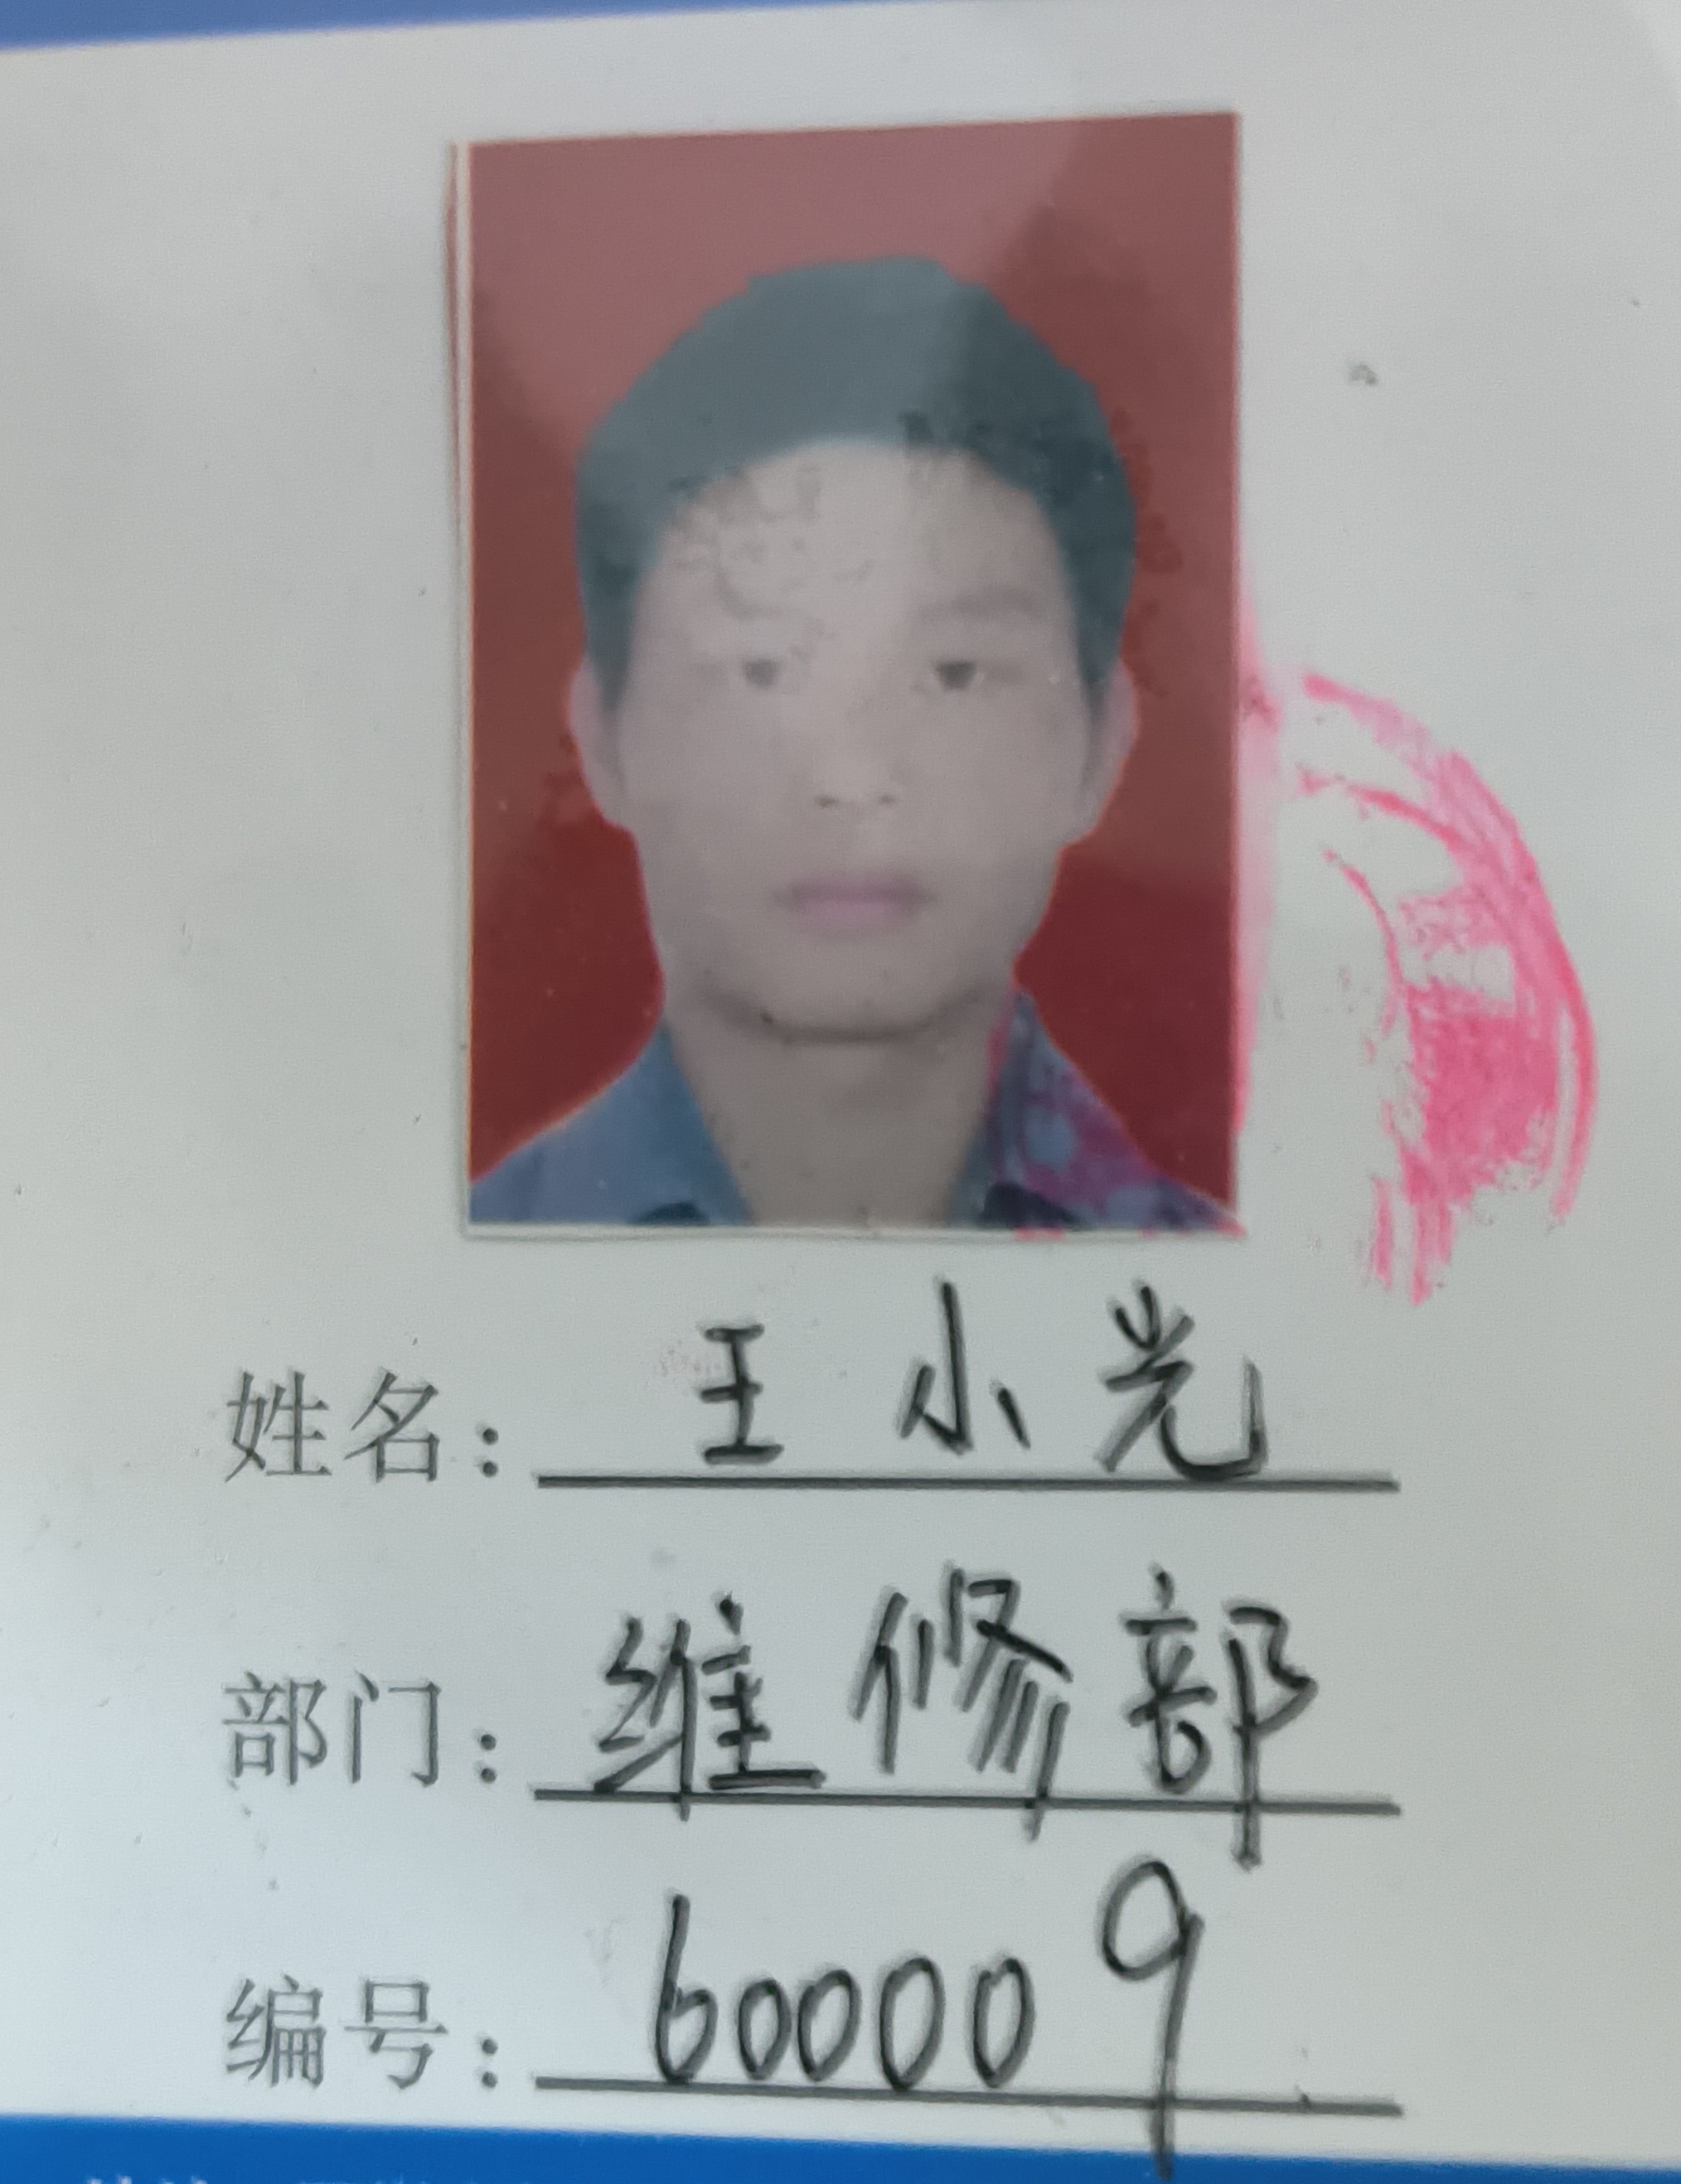 姓名：王小光
部门：维修部
编号：600009